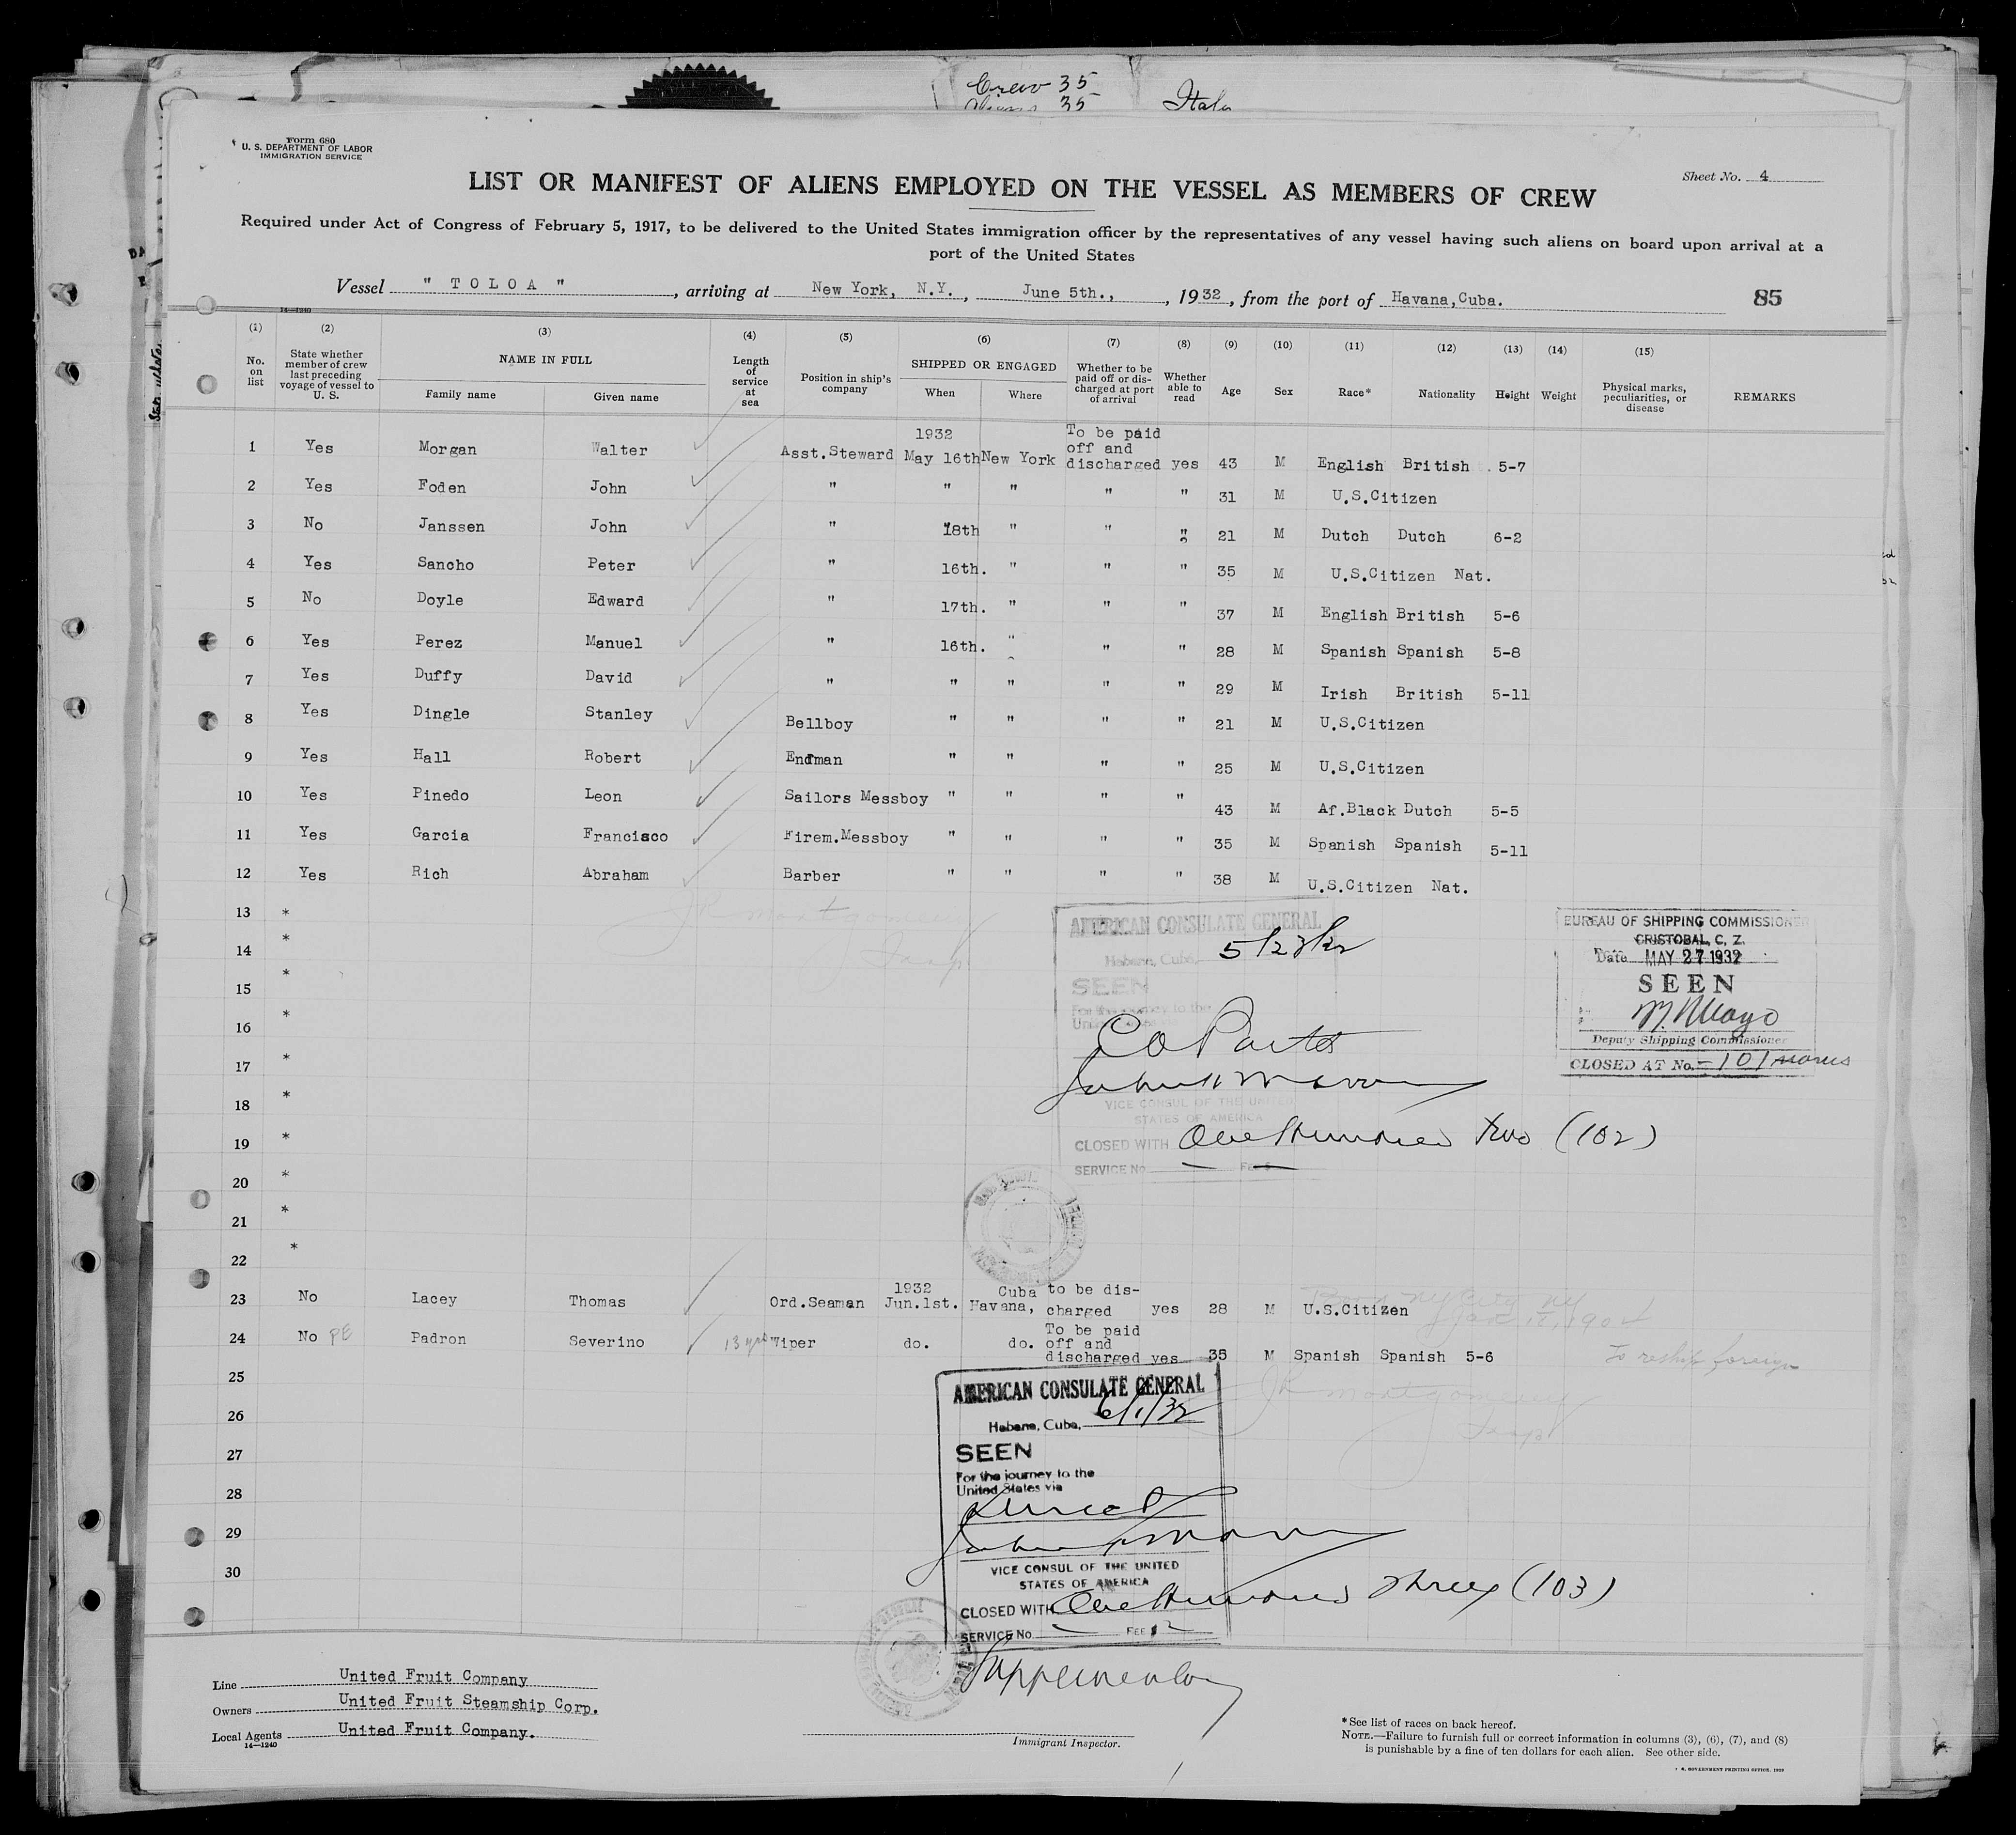 Crew 35
35
Form 680
U. S. DEPARTMENT OF LABOR
IMMIGRATION SERVICE
Sheet No. 4
LIST OR MANIFEST OF ALIENS EMPLOYED ON THE VESSEL AS MEMBERS OF CREW
Required under Act of Congress of February 5, 1917, to be delivered to the United States immigration officer by the representatives of any vessel having such aliens on board upon arrival at a
port of the United States
Vessel " T O L O A " , arriving at New York, N.Y. , June 5th., , 1932, from the port of Havana,Cuba.
85
14—1240
(1) (2) (3) (4) (5) (6) (7) (8) (9) (10) (11) (12) (13) (14) (15)
No. on list
State whether member of crew last preceding voyage of vessel to U. S.
NAME IN FULL
Family name Given name
Length of service at sea
Position in ship's company
SHIPPED OR ENGAGED
When Where
Whether to be paid off or discharged at port of arrival
Whether able to read
Age Sex Race* Nationality Height Weight
Physical marks, peculiarities, or disease
REMARKS
1 Yes Morgan Walter Asst.Steward 1932 May 16th New York To be paid off and discharged yes 43 M English British 5-7
2 Yes Foden John " " " " " 31 M U.S.Citizen
3 No Janssen John " 18th " " " 21 M Dutch Dutch 6-2
4 Yes Sancho Peter " 16th. " " " 35 M U.S.Citizen Nat.
5 No Doyle Edward " 17th. " " " 37 M English British 5-6
6 Yes Perez Manuel " 16th. " " " 28 M Spanish Spanish 5-8
7 Yes Duffy David " " " " " 29 M Irish British 5-11
8 Yes Dingle Stanley Bellboy " " " " 21 M U.S.Citizen
9 Yes Hall Robert Endman " " " " 25 M U.S.Citizen
10 Yes Pinedo Leon Sailors Messboy " " " " 43 M Af.Black Dutch 5-5
11 Yes Garcia Francisco Firem.Messboy " " " " 35 M Spanish Spanish 5-11
12 Yes Rich Abraham Barber " " " " 38 M U.S.Citizen Nat.
13 *
14 *
15 *
16 *
17 *
18 *
19 *
20 *
21 *
22 *
JR Montgomery
Insp
AMERICAN CONSULATE GENERAL
Habana, Cuba,
SEEN
For the journey to the
United States via
VICE CONSUL OF THE UNITED
STATES OF AMERICA
CLOSED WITH One Hundred two (102)
SERVICE No. — FEE $ —
BUREAU OF SHIPPING COMMISSIONER
CRISTOBAL, C. Z.
Date MAY 27 1932
SEEN
Deputy Shipping Commissioner
CLOSED AT No. - 101 names
23 No Lacey Thomas Ord.Seaman 1932 Jun.1st. Cuba Havana, to be discharged yes 28 M U.S.Citizen
24 No PE Padron Severino 13 yrs Wiper do. do. To be paid off and discharged yes 35 M Spanish Spanish 5-6 To reship foreign
25
26
27
28
29
30
JR Montgomery
Insp
AMERICAN CONSULATE GENERAL
Habana, Cuba, 6/1/32
SEEN
For the journey to the
United States via
Direct
VICE CONSUL OF THE UNITED
STATES OF AMERICA
CLOSED WITH One Hundred three (103)
SERVICE No. — FEE $2
Supplemental
Line United Fruit Company
Owners United Fruit Steamship Corp.
Local Agents United Fruit Company.
14—1240
Immigrant Inspector.
* See list of races on back hereof.
NOTE.—Failure to furnish full or correct information in columns (3), (6), (7), and (8)
is punishable by a fine of ten dollars for each alien. See other side.